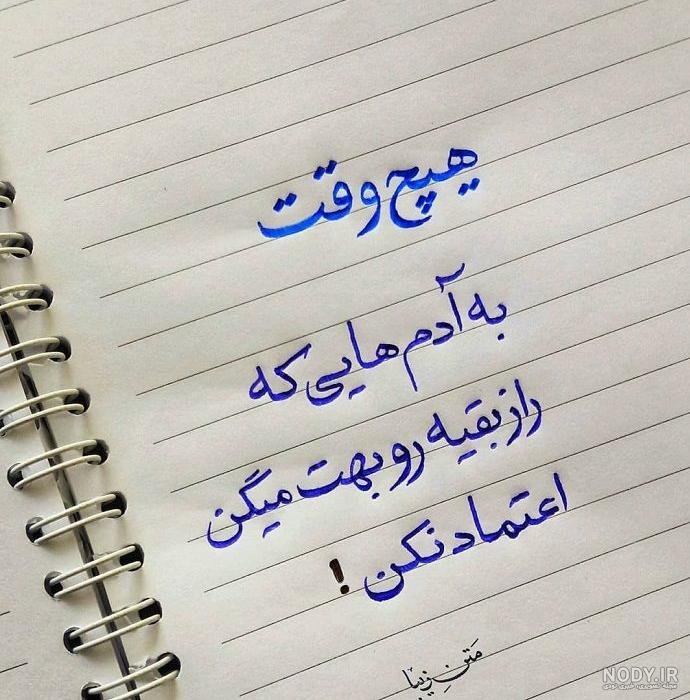 هیچ وقت
به آدم هایی که
راز بقیه رو بهت میگن
اعتماد نکن !
متن زیبا
NODY.IR